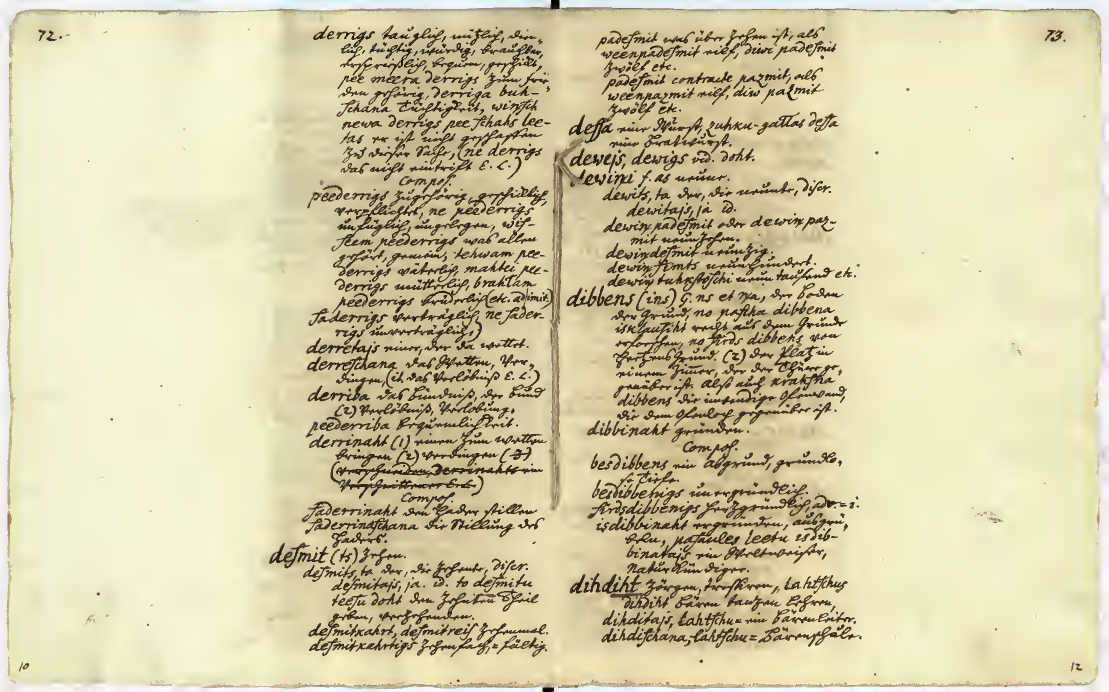 72.
derrigs tauglich, nützlich, dien-
lich, tüchtig, würdig, brauchbar,
ersprießlich, bequem, geschikt,
pee meera derrigs zum frie-
den gehörig, derriga buh-
schana Tüchtigkeit, winsch
newa derrigs pee schahs lee-
tas er ist nicht geschaffen
zu dieser Sache, (ne derrigs
das nicht eintrift E. L.)
Compos.
peederrigs zugehörig, geschiklich,
verpflichtet, ne peederrigs
unfüglich, ungelegen, wis-
seem peederrigs was allen
gehört, gemein, tehwam pee-
derrigs väterlich, mahtei pee-
derrigs mütterlich, brahlam
peederrigs brüderlich (etc. ad imit.)
saderrigs verträglich, ne sader-
rigs unverträglich.)
derretajs einer, der da wettet.
derreschana das Wetten, Ver-
dingen, (it. das Verlöbniß E. L.)
derriba das Bündniß, der Bund
(2) Verlöbniß, Verlobung.
peederriba Bequemlichkeit.
derrinaht (1) einen zum wetten
bringen (2) verdingen (3)
(verschneiden, derrinahts ein
Verschnittener E. L.)
Compos.
saderrinaht den Hader stillen
saderrinaschana die Stillung des
Haders.
desmit (ts) Zehen.
desmits, ta der, die Zehnte, discr.
desmitajs, ja. id. to desmitu
teesu doht den Zehnten Theil
geben, verzehenden.
desmitkahrt, desmitreis Zehenmal.
desmitkahrtigs Zehenfach, = fältig.
10
73.
padesmit was über Zehen ist, als
weenpadesmit eilf, diwi padesmit
zwölf etc.
padesmit contracte pazmit, als
weenpazmit eilf, diw pazmit
zwölf etc.
dessa eine Wurst, zuhku-gallas dessa
eine Bratwurst.
dewejs, dewigs vid. doht.
dewiņi f. as neune.
dewits, ta der, die neunte, discr.
dewitajs, ja id.
dewiņpadesmit oder dewiņpaz-
mit neunzehen.
dewiņdesmit neunzig.
dewiņsimts neunhundert.
dewiņtuhkstoschi neun tausend etc.
dibbens (ins) G. ns et ņa, der Boden
der Grund, no pascha dibbena
isklausiht recht aus dem Grunde
erforschen, no sirds dibbens von
Herzens Grund. (2) der Platz in
einem Zimmer, der der Thüre ge-
genüber ist. Also auch krahsna
dibbens die inwendige Ofenwand,
die dem Ofenloch gegenüber ist.
dibbinaht gründen.
Compos.
besdibbens ein Abgrund, grundlo-
se Tiefe.
besdibbenigs unergründlich.
sirdsdibbenigs herzgründlich, adv. = i.
isdibbinaht ergründen, ausgrü-
beln, pasaules leetu isdib-
binatajs ein Weltweiser,
naturkündiger.
dihdiht zörgen, trossiren, Lahtschus
dihdiht Bären tanzen Lehren,
dihditajs, Lahtschu = ein Bärenleiter.
dihdischana, Lahtschu = Bärenschule.
12